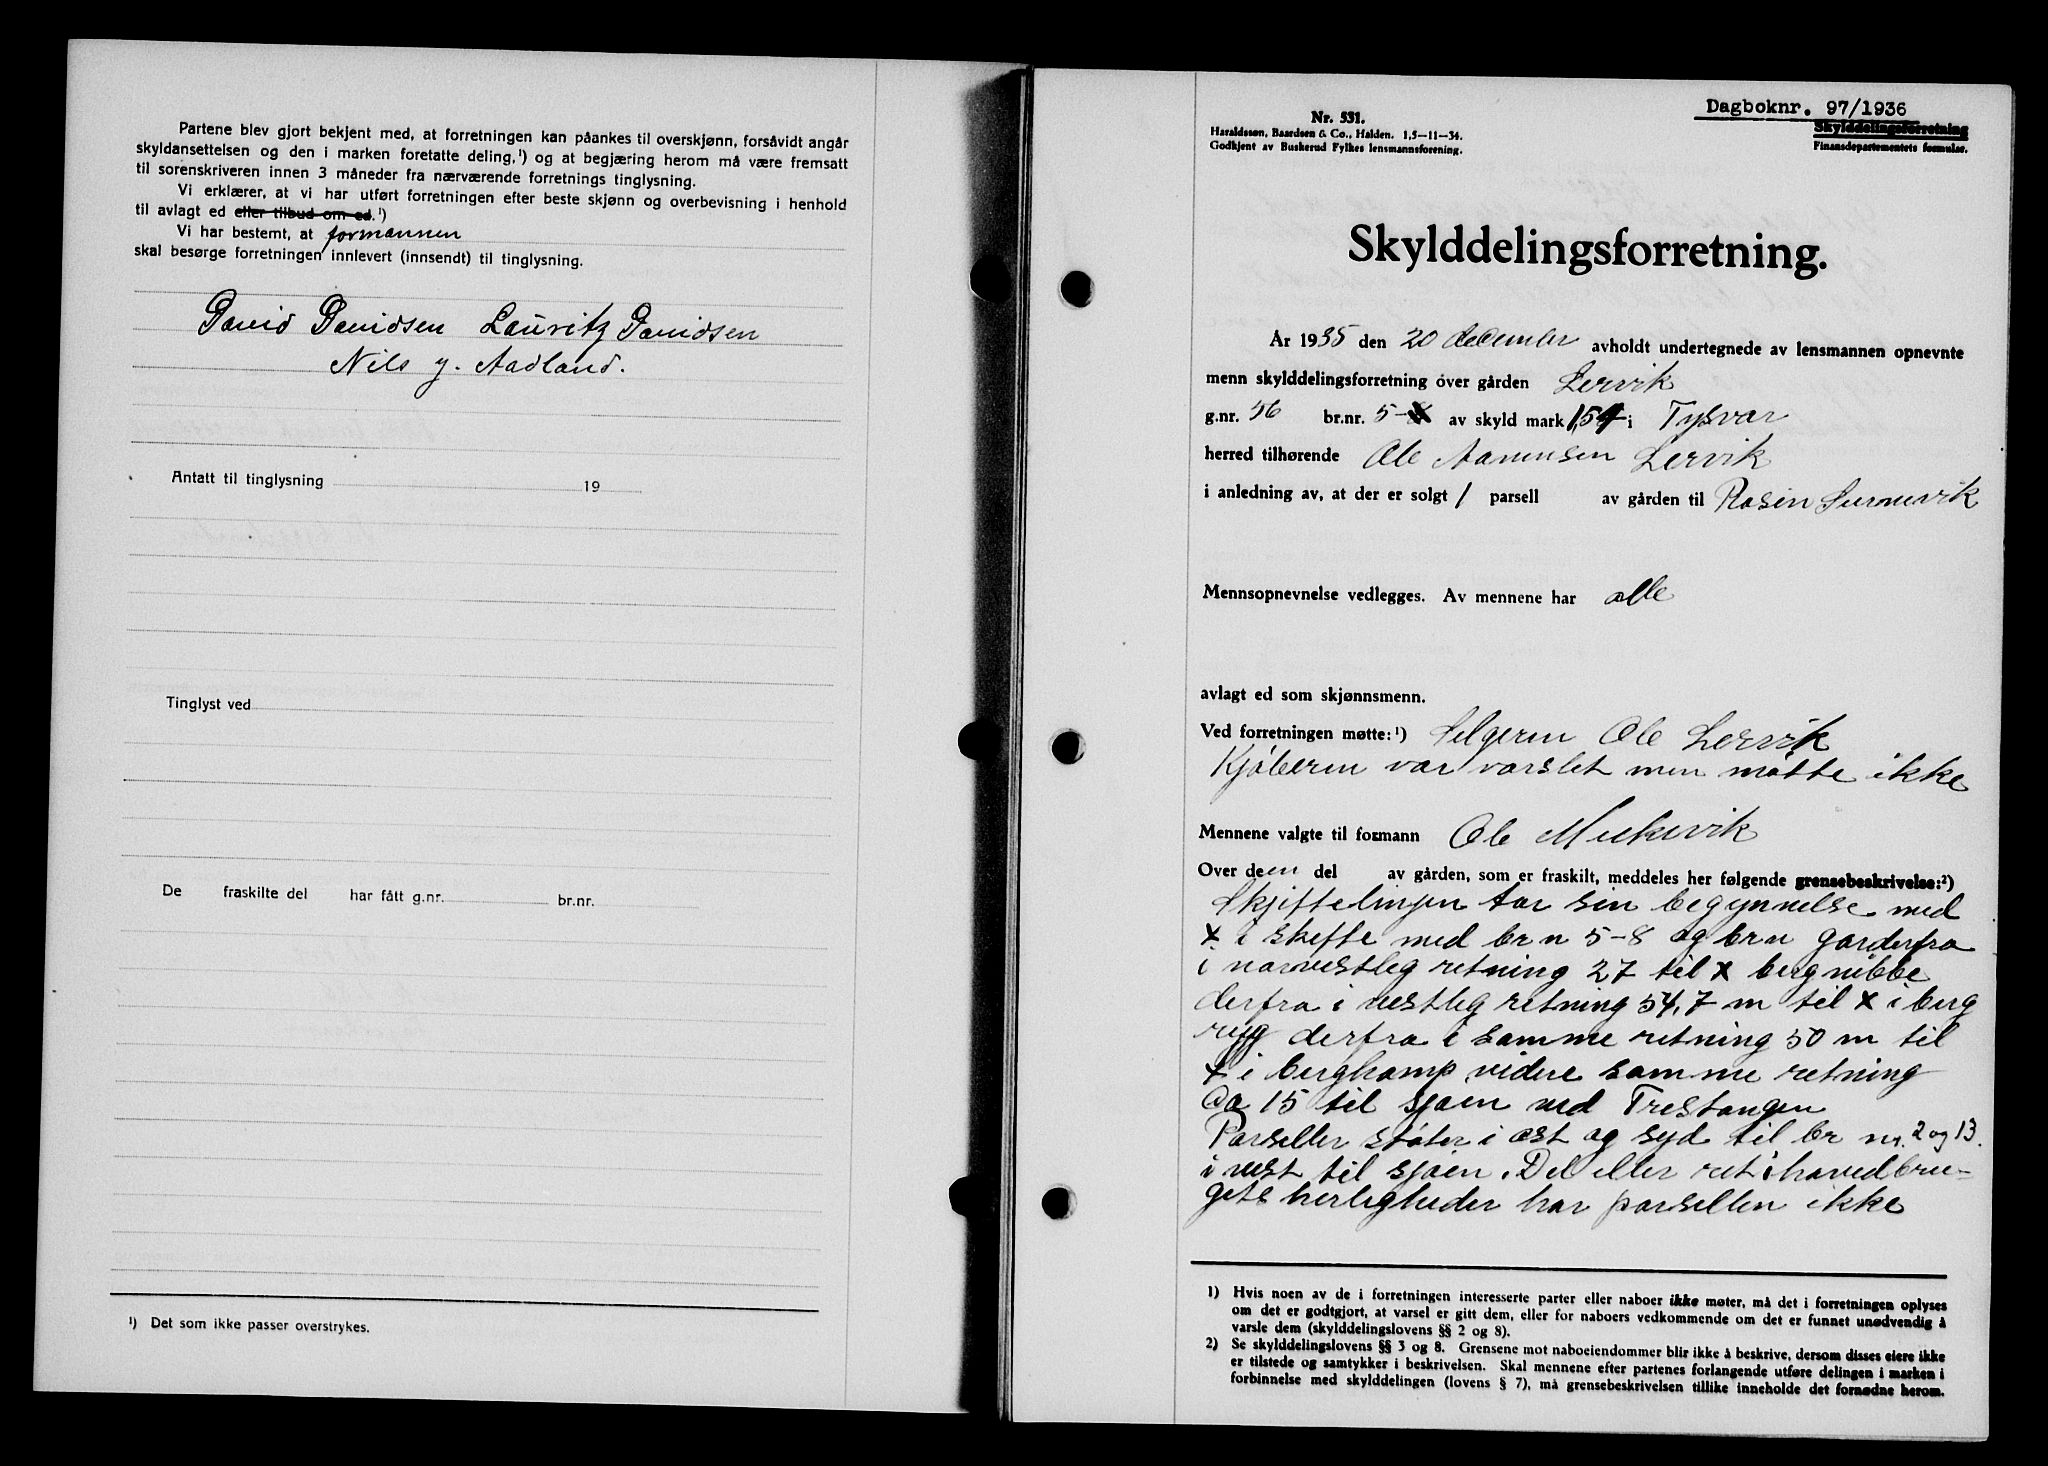 Partene blev gjort bekjent med, at forretningen kan påankes til overskjønn, forsåvidt angår
skyldansettelsen og den i marken foretatte deling,¹) og at begjæring herom må være fremsatt
til sorenskriveren innen 3 måneder fra nærværende forretnings tinglysning.
Vi erklærer, at vi har utført forretningen efter beste skjønn og overbevisning i henhold
til avlagt ed eller tilbud om ed.¹)
Vi har bestemt, at formannen
skal besørge forretningen innlevert (innsendt) til tinglysning.
David Davidsen Lauritz Davidsen
Nils J. Aadland.
Antatt til tinglysning 19
Tinglyst ved
De fraskilte del har fått g.nr. br.nr.
¹) Det som ikke passer overstrykes.
Dagboknr. 97/1936
Nr. 531.
Haraldssøn, Baardsen & Co., Halden. 1,5—11—34.
Godkjent av Buskerud Fylkes lensmannsforening.
Skylddelingsforretning
Finansdepartementets formular.
Skylddelingsforretning.
År 1935 den 20 december avholdt undertegnede av lensmannen opnevnte
menn skylddelingsforretning over gården Lervik
g.nr. 56 br.nr. 5-8 av skyld mark i Tysvar
herred tilhørende Ole Lervik
i anledning av, at der er solgt 1 parsell av gården til Rasin
Mennsopnevnelse vedlegges. Av mennene har alle
avlagt ed som skjønnsmenn.
Ved forretningen møtte:¹) Selgeren Ole Lervik
Kjøberen var varslet men møtte ikke
Mennene valgte til formann Ole
Over deen del av gården, som er fraskilt, meddeles her følgende grensebeskrivelse:²)
Skjiftelinjen tar sin begynnelse med
x i skifte med br n 5-8 og br n 9 derfra
i norvestleg retning 27 til x bergnibbe
derfra i vestleg retning 54,7 m til x i berg
rygg derfra i samme retning 50 m til
x i berghamp videre samme retning
Ca 15 til sjøen ved Trestangen
Parsellen støter i øst og syd til br nr. 2 og 13.
i vest til sjøen. Del eller ret i hovedbru-
gets herligheder har parsellen ikke
1) Hvis noen av de i forretningen interesserte parter eller naboer ikke møter, må det i forretningen oplyses
om det er godtgjort, at varsel er gitt dem, eller for naboers vedkommende om det er funnet unødvendig å
varsle dem (skylddelingslovens §§ 2 og 8).
2) Se skylddelingslovens §§ 3 og 8. Grensene mot naboeiendommer blir ikke å beskrive, dersom disses eiere ikke
er tilstede og samtykker i beskrivelsen. Skal mennene efter partenes forlangende utføre delingen i marken i
forbinnelse med skylddelingen (lovens § 7), må grensebeskrivelsen tillike inneholde det fornødne herom.